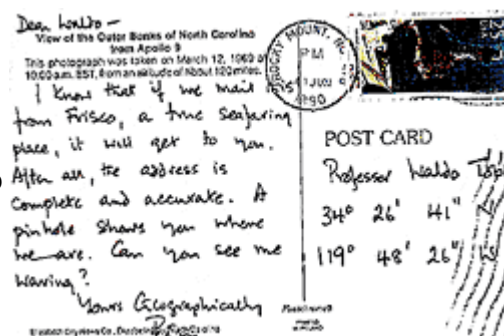 Dear Waldo —
View of the Outer Banks of North Carolina
from Apollo 9
This photograph was taken on March 12, 1969 at
10:00 a.m. EST, from an altitude of about 120 miles.
I know that if we mail this
from Frisco, a true seafaring
place, it will get to you.
After all, the address is
complete and accurate. A
pinhole shows you where
we are. Can you see me
waving?
Yours Geographically
ROCKY MOUNT, NC
PM
1990
POST CARD
Professor Waldo
34° 26' 41" N
119° 48' 26" W